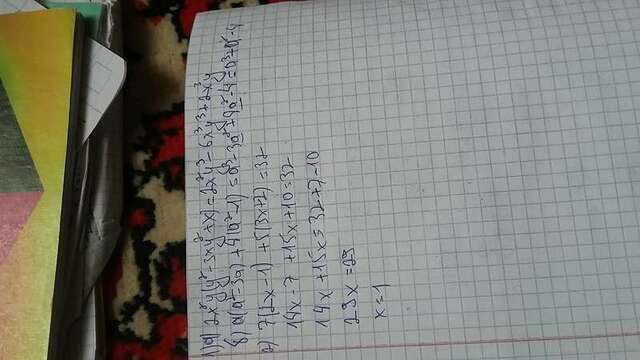 1) a) 2x²y(y²-3xy²+x)=2x²y³-6x³y³+2x³y
б) a(a²-3a)+4(a²-1)=a³-3a²+4a²-4=a³+a²-4
2) 7(2x-1)+5(3x+2)=32
14x-7+15x+10=32
14x+15x=32+7-10
29x=29
x=1